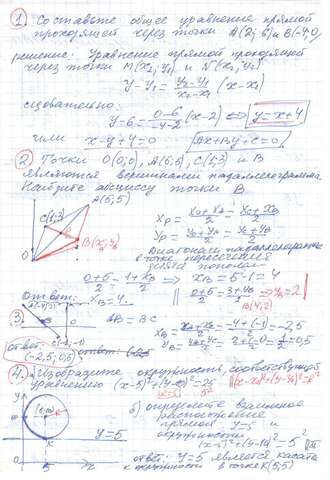 1) Составьте общее уравнение прямой
проходящей через точки A(2;6) и B(-4;0)
решение: Уравнение прямой проходящей
через точки M(x₁,y₁) и N(x₂,y₂)
y-y₁ = (y₂-y₁)/(x₂-x₁) (x-x₁)
следовательно:
y-6 = (0-6)/(-4-2) (x-2) ⟺ y=x+4
или x-y+4=0 (Ax+By+C=0)
2. Точки O(0;0), A(5;5), C(1;3) и B
являются вершинами параллелограмма
Найдите абсциссу точки B
A(5;5)
C(1;3)
P
B(x;y)
O
Диагонали параллелограмма
в точке пересечения
делятся пополам
(0+5)/2 = (1+x_B)/2 ⇒ x_B=5-1=4
ответ: x_B=4.
B(4;2)
3.
AB=BC
ответ:
(-2,5;0,5)
4. Изобразите окружность, соответствующую
уравнению (x-5)²+(y-10)²=25
б) определите взаимное
расположение
прямая y=5 и
окружности
(x-5)²+(y-10)²=5²
y=5
K
5
x
ответ: y=5 является касат.
к окружности в точке K(5;5)